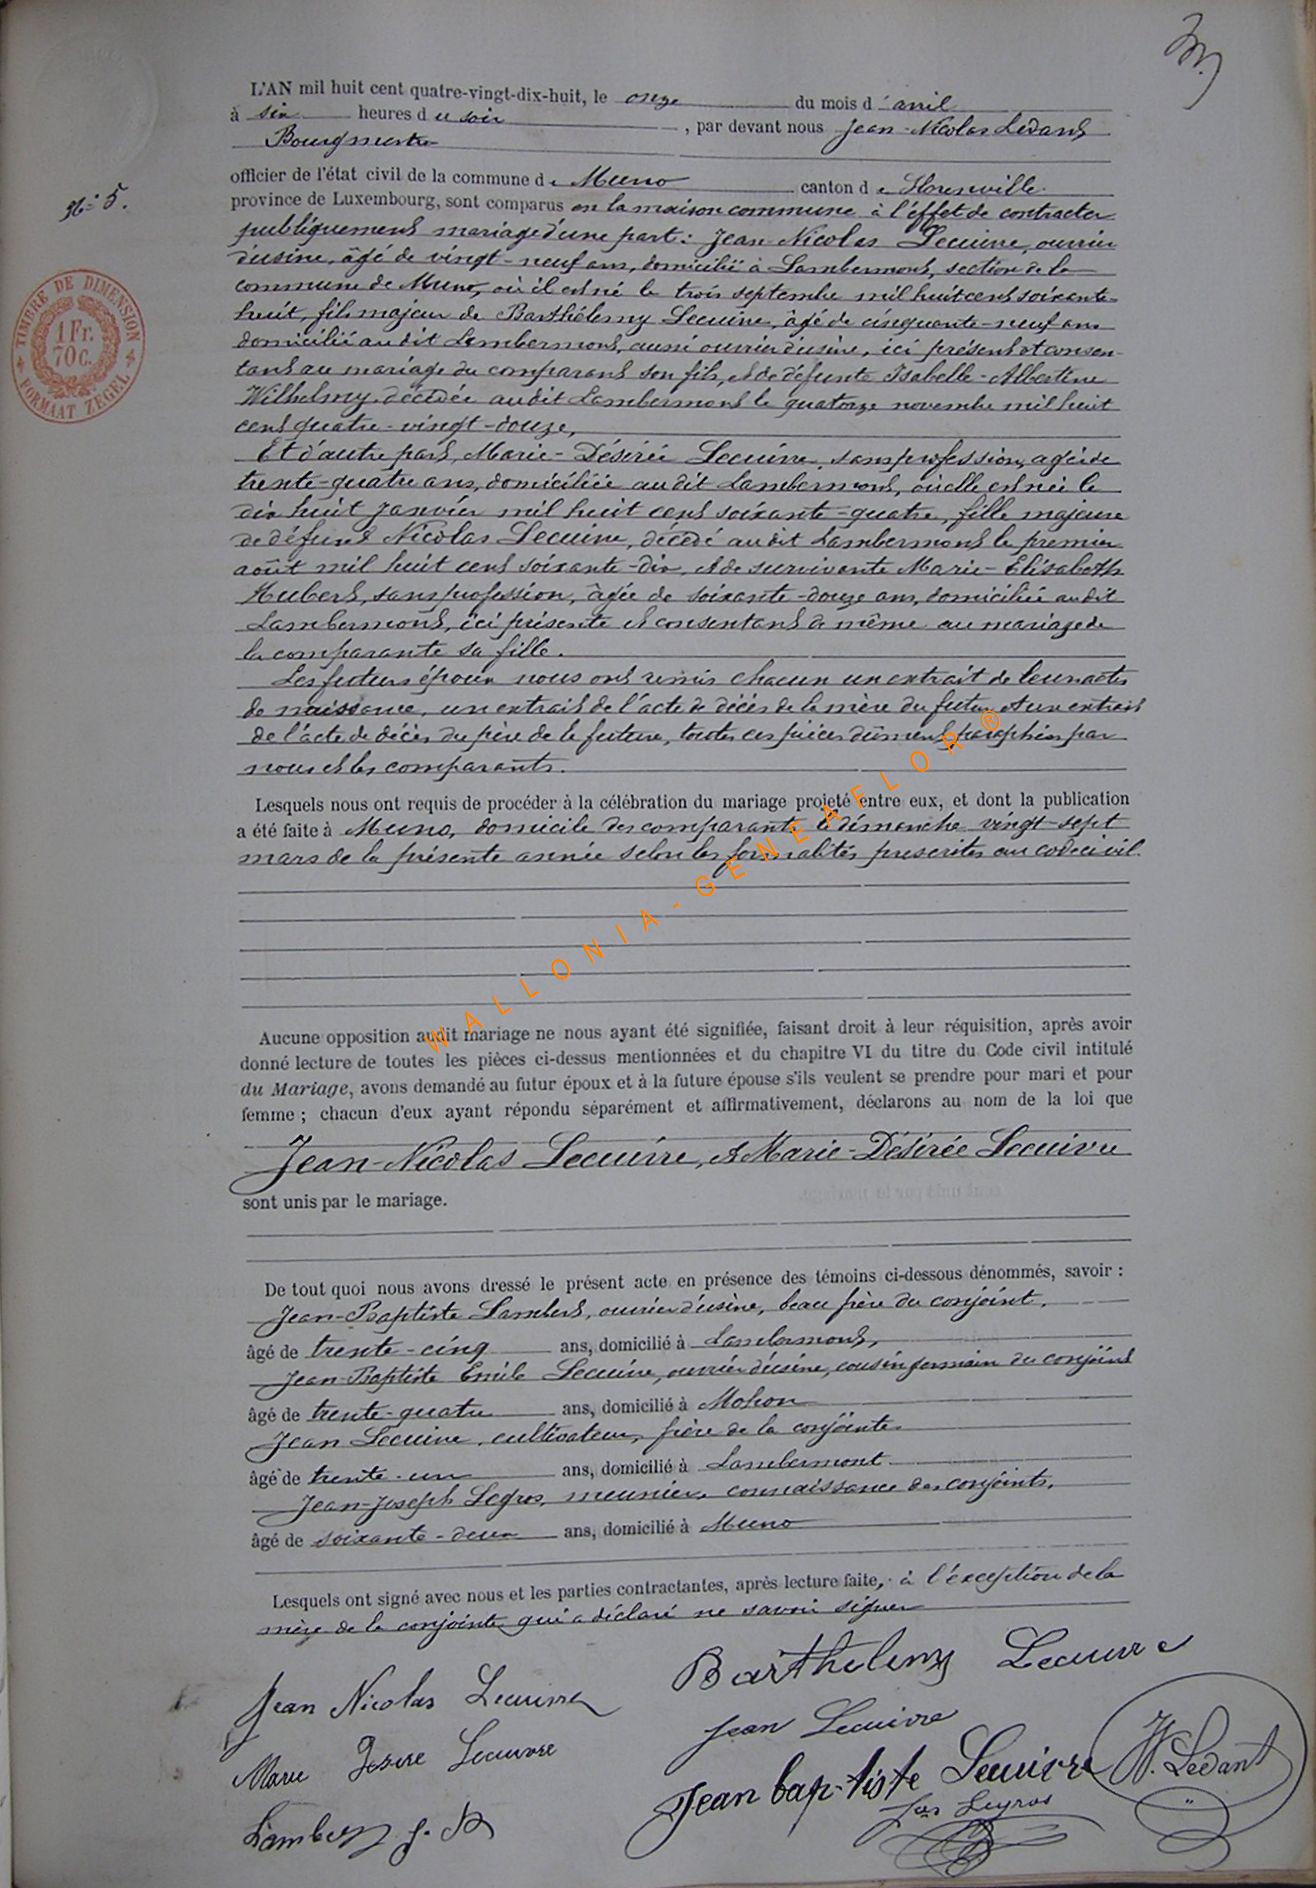 L'AN mil huit cent quatre-vingt-dix-huit, le onze du mois d'avril
à six heures du soir, par devant nous Jean-Nicolas Ledant
Bourgmestre
officier de l'état civil de la commune de Muno canton de Florenville
N° 5.
province de Luxembourg, sont comparus en la maison commune à l'effet de contracter
publiquement mariage d'une part: Jean-Nicolas Lecuivre, ouvrier
d'usine, âgé de vingt-neuf ans, domicilié à Lambermont, section de la
commune de Muno, où il est né le trois septembre mil huit cent soixante-
huit, fils majeur de Barthélemy Lecuivre, âgé de cinquante-neuf ans
domicilié audit Lambermont, aussi ouvrier d'usine, ici présent et consen-
tant au mariage du comparant son fils, et de défunte Isabelle-Albertine
Wilhelmy décédée audit Lambermont le quatorze novembre mil huit
cent quatre-vingt-douze,
Et d'autre part, Marie-Désirée Lecuivre, sans profession, agée de
trente-quatre ans, domiciliée audit Lambermont, où elle est née le
dix huit Janvier mil huit cent soixante-quatre, fille majeure
de défunt Nicolas Lecuivre, décédé audit Lambermont le premier
août mil huit cent soixante-dix, et de survivante Marie-Elisabeth
Hubert, sans profession, âgée de soixante-douze ans, domiciliée audit
Lambermont, ici présente et consentant de même au mariage de
la comparante sa fille.
Les futurs époux nous ont remis chacun un extrait de leurs actes
de naissance, un extrait de l'acte de décès de la mère du futur et un extrait
de l'acte de décès du père de la future, toutes ces pièces dûment paraphées par
nous et les comparants.
Lesquels nous ont requis de procéder à la célébration du mariage projeté entre eux, et dont la publication
a été faite à Muno, domicile des comparants le dimanche vingt-sept
mars de la présente année selon les formalités prescrites au code civil.
Aucune opposition audit mariage ne nous ayant été signifiée, faisant droit à leur réquisition, après avoir
donné lecture de toutes les pièces ci-dessus mentionnées et du chapitre VI du titre du Code civil intitulé
du Mariage, avons demandé au futur époux et à la future épouse s'ils veulent se prendre pour mari et pour
femme ; chacun d'eux ayant répondu séparément et affirmativement, déclarons au nom de la loi que
Jean-Nicolas Lecuivre, et Marie-Désirée Lecuivre
sont unis par le mariage.
De tout quoi nous avons dressé le présent acte en présence des témoins ci-dessous dénommés, savoir :
Jean-Baptiste Lambert, ouvrier d'usine, beau frère du conjoint,
âgé de trente-cinq ans, domicilié à Lambermont,
Jean-Baptiste Emile Lecuivre, ouvrier d'usine, cousin germain du conjoint
âgé de trente-quatre ans, domicilié à Mohon
Jean Lecuivre, cultivateur, frère de la conjointe
âgé de trente-un ans, domicilié à Lambermont
Jean-Joseph Legros, meunier, connaissance des conjoints,
âgé de soixante-deux ans, domicilié à Muno
Lesquels ont signé avec nous et les parties contractantes, après lecture faite, à l'exception de la
mère de la conjointe qui a déclaré ne savoir signer
Barthelemy Lecuivre
Jean Nicolas Lecuivre
Jean Lecuivre
Marie Desire Lecuivre
Jean baptiste Lecuivre
N. Ledant
Jos Legros
Lambert J. B
TIMBRE DE DIMENSION
1 Fr.
70 C.
FORMAAT ZEGEL
WALLONIA-GENEAFLOR ®